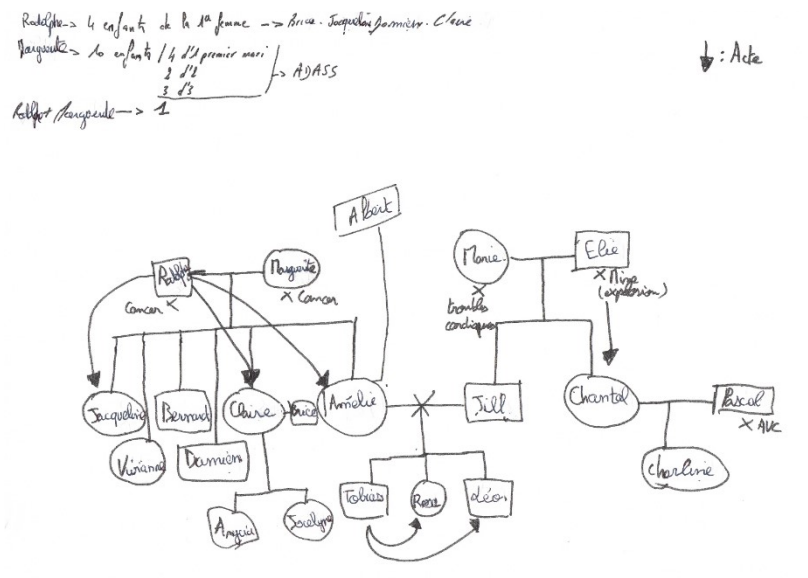 Rodolphe -> 4 enfants de la 1ª femme -> Brice. Jacqueline. Damien. Claire
Marguerite -> 10 enfants / 4 d'1 premier mari
2 d'2
3 d'3
-> ADASS
Rodolphe + Marguerite -> 1
: Acte
Albert
Rodolphe
Cancer X
Marguerite
X Cancer
Marie
X
troubles
cardiaques
Elie
X Mine
(explosion)
Jacqueline
Bernard
Claire
Brice
Amélie
X
Jill
Chantal
Pascal
X AVC
Vivianne
Damien
Charline
Tobias
Léo
Jocelyne